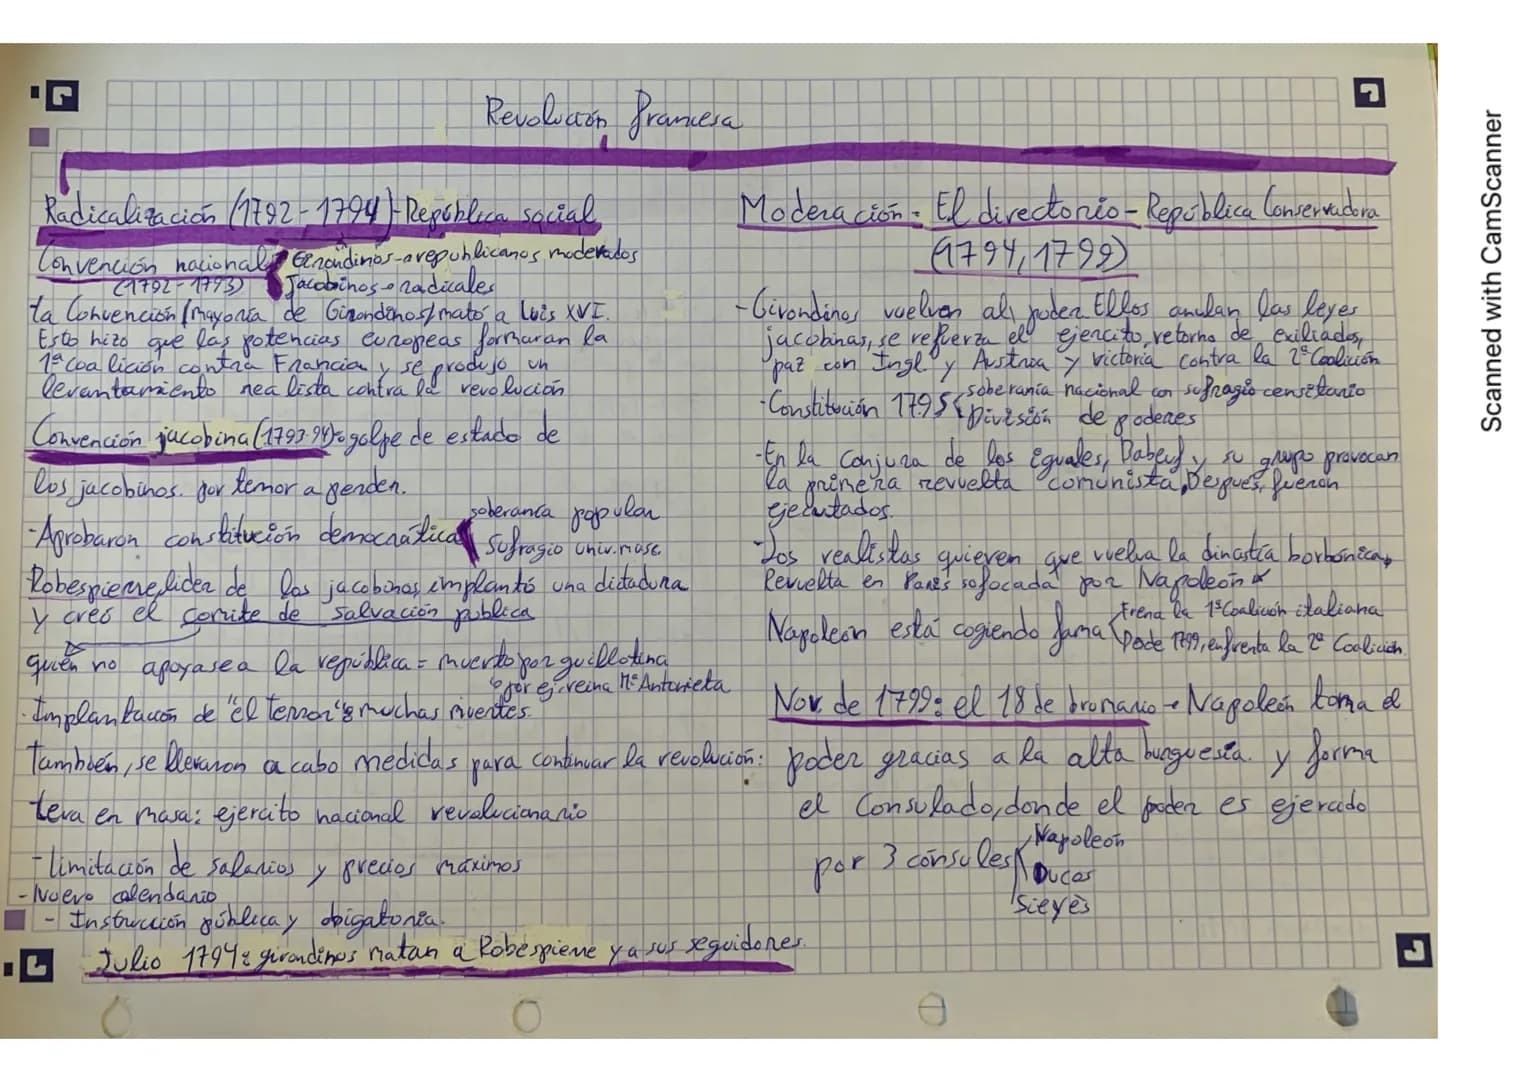 Revolución francesa
Radicalización (1792-1794)-República social
Convención nacional Girondinos→republicanos moderados
(1792-1793) Jacobinos→radicales
La Convención (mayoría de Girondinos) mató a Luis XVI.
Esto hizo que las potencias europeas formaran la
1ª coalición contra Francia y se produjo un
levantamiento realista contra la revolución
Convención jacobina (1793-94)→golpe de estado de
los jacobinos. por temor a perder.
-Aprobaron constitución democrática soberanía popular
Sufragio univ.masc.
Robespierre, lider de los jacobinos, implantó una dictadura
y creó el comite de salvación pública
quién no apoyase a la república = muerto por guillotina
por ej. reina Mª Antonieta
-Implantación de "el terror" muchas muertes.
También, se llevaron a cabo medidas para continuar la revolución:
Leva en masa: ejercito nacional revolucionario
-limitación de salarios y precios máximos
-Nuevo calendario
- Instrucción pública y obigatoria.
Julio 1794: girondinos matan a Robespierre y a sus seguidores.
Moderación - El directorio - República Conservadora
(1794, 1799)
-Girondinos vuelven al poder. Ellos anulan las leyes
jacobinas, se refuerza el ejercito, retorno de exiliados,
paz con Ingl y Austria y victoria contra la 2ª Coalición
-Constitución 1795 soberanía nacional con sufragio censitario
División de poderes
-En la Conjura de los Eguales, Babeuf y su grupo provocan
la primera revuelta comunista. Después, fueron
ejecutados.
-Los realistas quieren que vuelva la dinastía borbónica,
Revuelta en París sofocada por Napoleón
Napoleón está cogiendo fama Frena la 1ª Coalición italiana
Dede 1799, enfrenta la 2ª Coalición
Nov. de 1799: el 18 de brumario→Napoleón toma el
poder gracias a la alta burguesía. y forma
el Consulado, donde el poder es ejercido
por 3 cónsules Napoleón
Ducos
Sieyès
Scanned with CamScanner